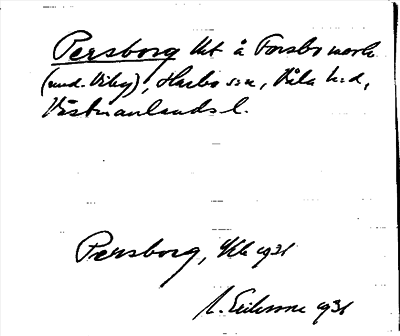 Persborg tkt å Forsbo mark
(und. Viby), Harbo sn, Våla hd,
Västmanlands l.
Persborg, 1931
Eriksson 1931